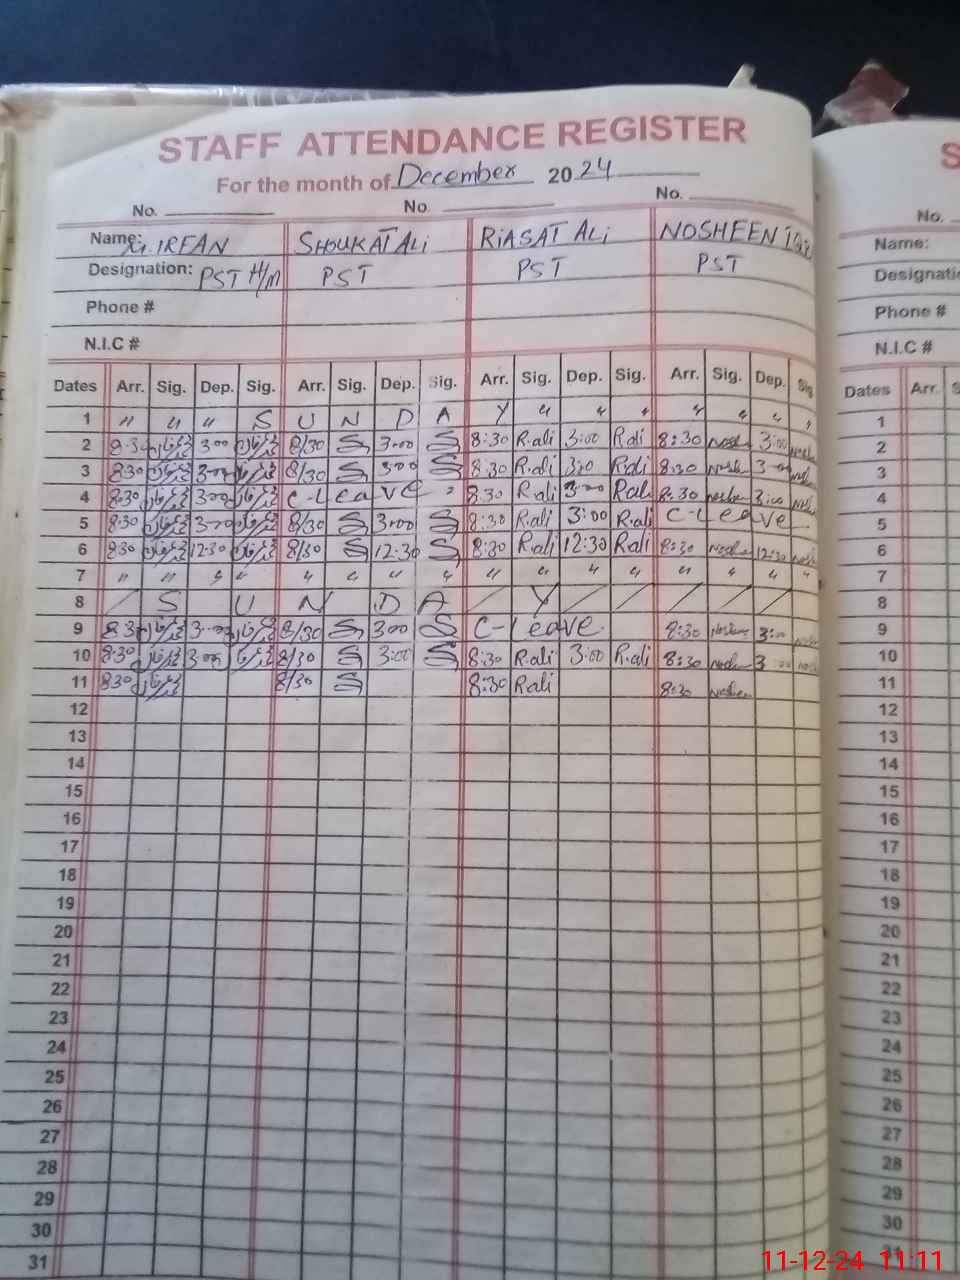 STAFF ATTENDANCE REGISTER
For the month of December 2024
No. No. No.
Name: M. IRFAN SHOUKAT ALi RiASAT ALi NOSHEEN
Designation: PST H/M PST PST PST
Phone #
N.I.C #
Dates Arr. Sig. Dep. Sig. Arr. Sig. Dep. Sig. Arr. Sig. Dep. Sig. Arr. Sig. Dep. Sig
1 " " " S U N D A Y " " " " " " "
2 8:30 3:00 8/30 S 3:00 S 8:30 R.ali 3:00 R.ali 8:30 3:00
3 8:30 3:00 8/30 S 3:00 S 8:30 R.ali 3:00 R.ali 8:30 3:00
4 8:30 3:00 C-Leave " 8:30 R.ali 3:00 R.ali 8:30 3:00
5 8:30 3:00 8/30 S 3:00 S 8:30 R.ali 3:00 R.ali C-Leave
6 8:30 12:30 8/30 S 12:30 S 8:30 R.ali 12:30 R.ali 8:30 12:30
7 " " " " " " " " " " " " " " " "
8 / S U N D A / Y / / / / /
9 8:30 3:00 8/30 S 3:00 S C-Leave. 8:30 3:00
10 8:30 3:00 8/30 S 3:00 S 8:30 R.ali 3:00 R.ali 8:30 3:00
11 8:30 8/30 S 8:30 R.ali 8:30
12
13
14
15
16
17
18
19
20
21
22
23
24
25
26
27
28
29
30
31
S
No.
Name:
Designati
Phone #
N.I.C #
Dates Arr. S
1
2
3
4
5
6
7
8
9
10
11
12
13
14
15
16
17
18
19
20
21
22
23
24
25
26
27
28
29
30
31
11-12-24 11:11